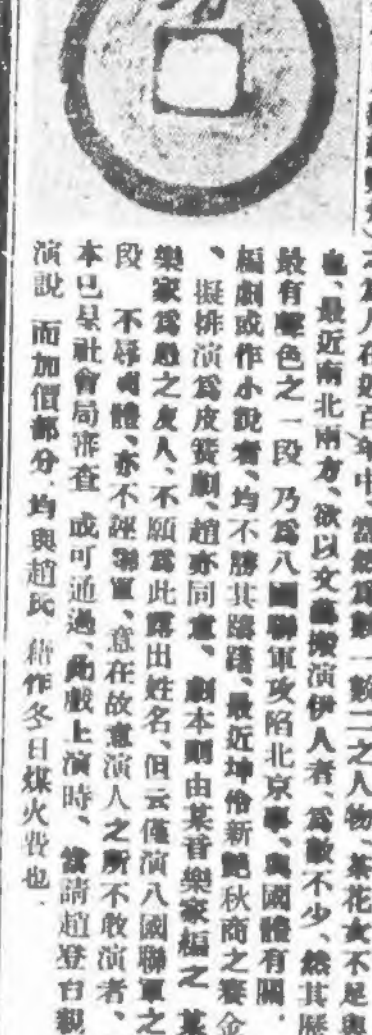 之爲人在近百年中、當然爲數一數二之人物、茶花女不足與
也、最近南北兩方、欲以文藝搬演伊人者、爲數不少、然其歷
最有聲色之一段 乃爲八國聯軍攻陷北京事、與國體有關、
編劇或作小說者、均不勝其躊躇、最近坤伶新艷秋商之賽金
、擬排演爲皮簧劇、趙亦同意、劇本則由某音樂家編之 某
樂家爲愚之友人、不願爲此露出姓名、但云僅演八國聯軍之
段 不辱國體、亦不誣聯軍、意在故意演人之所不敢演者、
本已呈社會局審查 或可通過、此戲上演時、當請趙登台親
演說 而加價部分、均與趙氏 藉作冬日煤火費也、